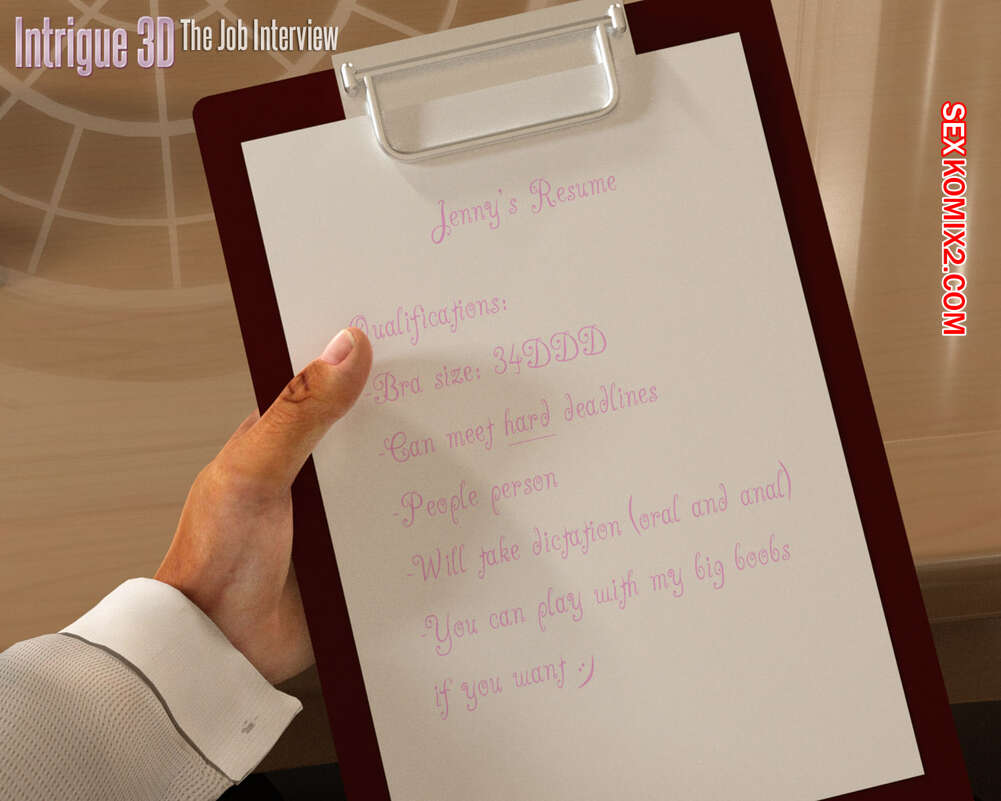 Intrigue 3D The Job Interview
SEXKOMIX2.COM
Jenny's Resume
Qualifications:
-Bra size: 34DDD
-Can meet hard deadlines
-People person
-Will take dictation (oral and anal)
-You can play with my big boobs
if you want :)